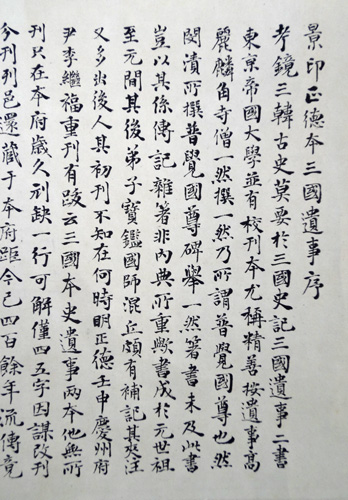 景印正德本三國遺事序
考鏡三韓古史莫要於三國史記三國遺事二書
東京帝國大學並有校刊本尤稱精善按遺事高
麗麟角寺僧一然撰一然乃所謂普覺國尊也然
閔漬所撰普覺國尊碑舉一然箸書未及此書
豈以其係傳記雜著非內典所重歟書成於元世祖
至元間其後弟子寶鑑國師混丘頗有補記其夾注
又多出後人其初刊不知在何時明正德壬申慶州府
尹李繼福重刊有跋云三國本史遺事兩本他無所
刊只在本府歲久刓缺一行可解僅四五字因謀改刊
今刊列邑還藏于本府距今已四百餘年流傳竟